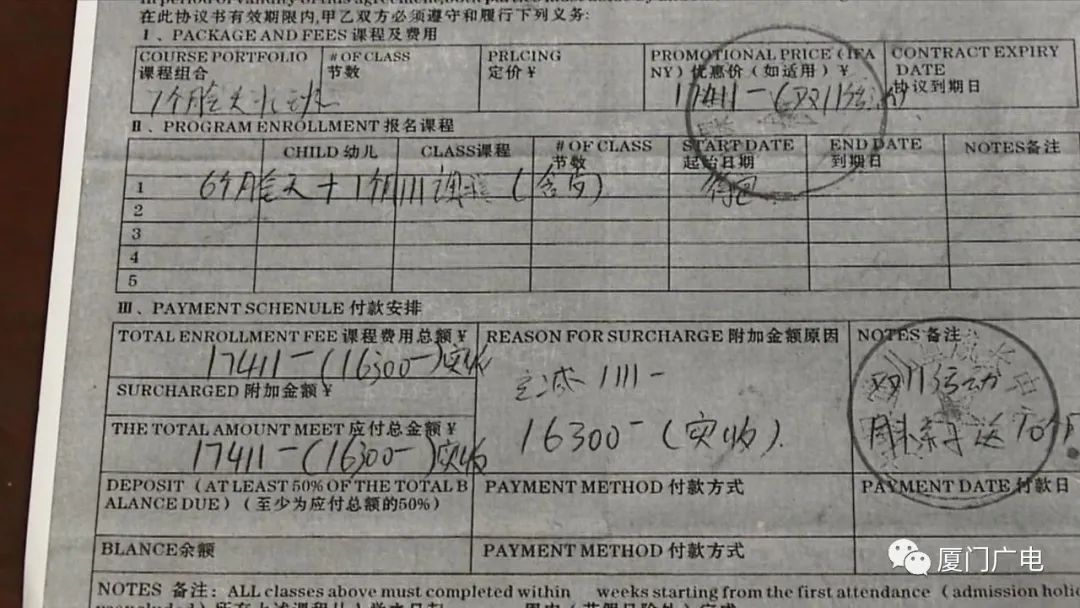 在此协议书有效期限内,甲乙双方必须遵守和履行下列义务:
Ⅰ、PACKAGE AND FEES 课程及费用
COURSE PORTFOLIO
课程组合
# OF CLASS
节数
PRLCING
定价¥
PROMOTIONAL PRICE (IFA
NY) 优惠价（如适用）¥
CONTRACT EXPIRY
DATE
协议到期日
7个月全天
17411-（双11活动）
Ⅱ、PROGRAM ENROLLMENT 报名课程
CHILD 幼儿
CLASS课程
# OF CLASS
节数
START DATE
起始日期
END DATE
到期日
NOTES备注
1
6个月全天+1个月
2
3
4
5
Ⅲ、PAYMENT SCHENULE 付款安排
TOTAL ENROLLMENT FEE 课程费用总额¥
17411-(16300-)实收
REASON FOR SURCHARGE 附加金额原因
立减 1111-
16300-（实收）.
NOTES 备注
双11活动
SURCHARGED 附加金额¥
THE TOTAL AMOUNT MEET 应付总金额¥
17411-(16300-)实收
DEPOSIT（AT LEAST 50% OF THE TOTAL B
ALANCE DUE）（至少为应付总额的50%）
PAYMENT METHOD 付款方式
PAYMENT DATE 付款日
BLANCE余额
PAYMENT METHOD 付款方式
NOTES 备注: ALL classes above must completed within weeks starting from the first attendance（admission holic
厦门广电